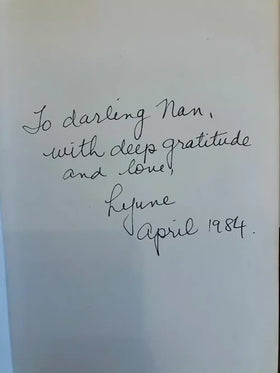 To darling Nan,
with deep gratitude
and love,
Lynne
April 1984.